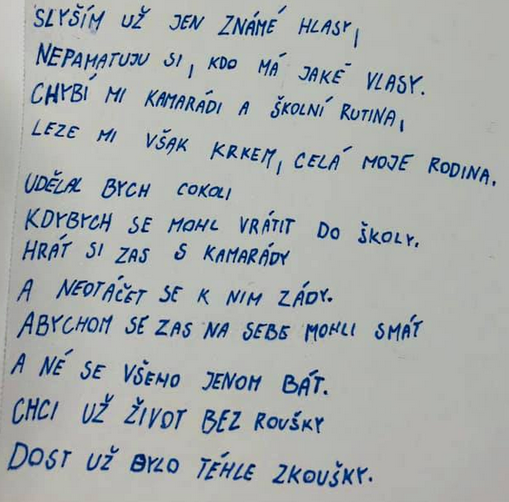 SLYŠÍM UŽ JEN ZNÁMÉ HLASY,
NEPAMATUJU SI, KDO MÁ JAKÉ VLASY.
CHYBÍ MI KAMARÁDI A ŠKOLNÍ RUTINA,
LEZE MI VŠAK KRKEM, CELÁ MOJE RODINA.
UDĚLAL BYCH COKOLI
KDYBYCH SE MOHL VRÁTIT DO ŠKOLY.
HRÁT SI ZAS S KAMARÁDY
A NEOTÁČET SE K NIM ZÁDY.
ABYCHOM SE ZAS NA SEBE MOHLI SMÁT
A NÉ SE VŠEHO JENOM BÁT.
CHCI UŽ ŽIVOT BEZ ROUŠKY
DOST UŽ BYLO TÉHLE ZKOUŠKY.